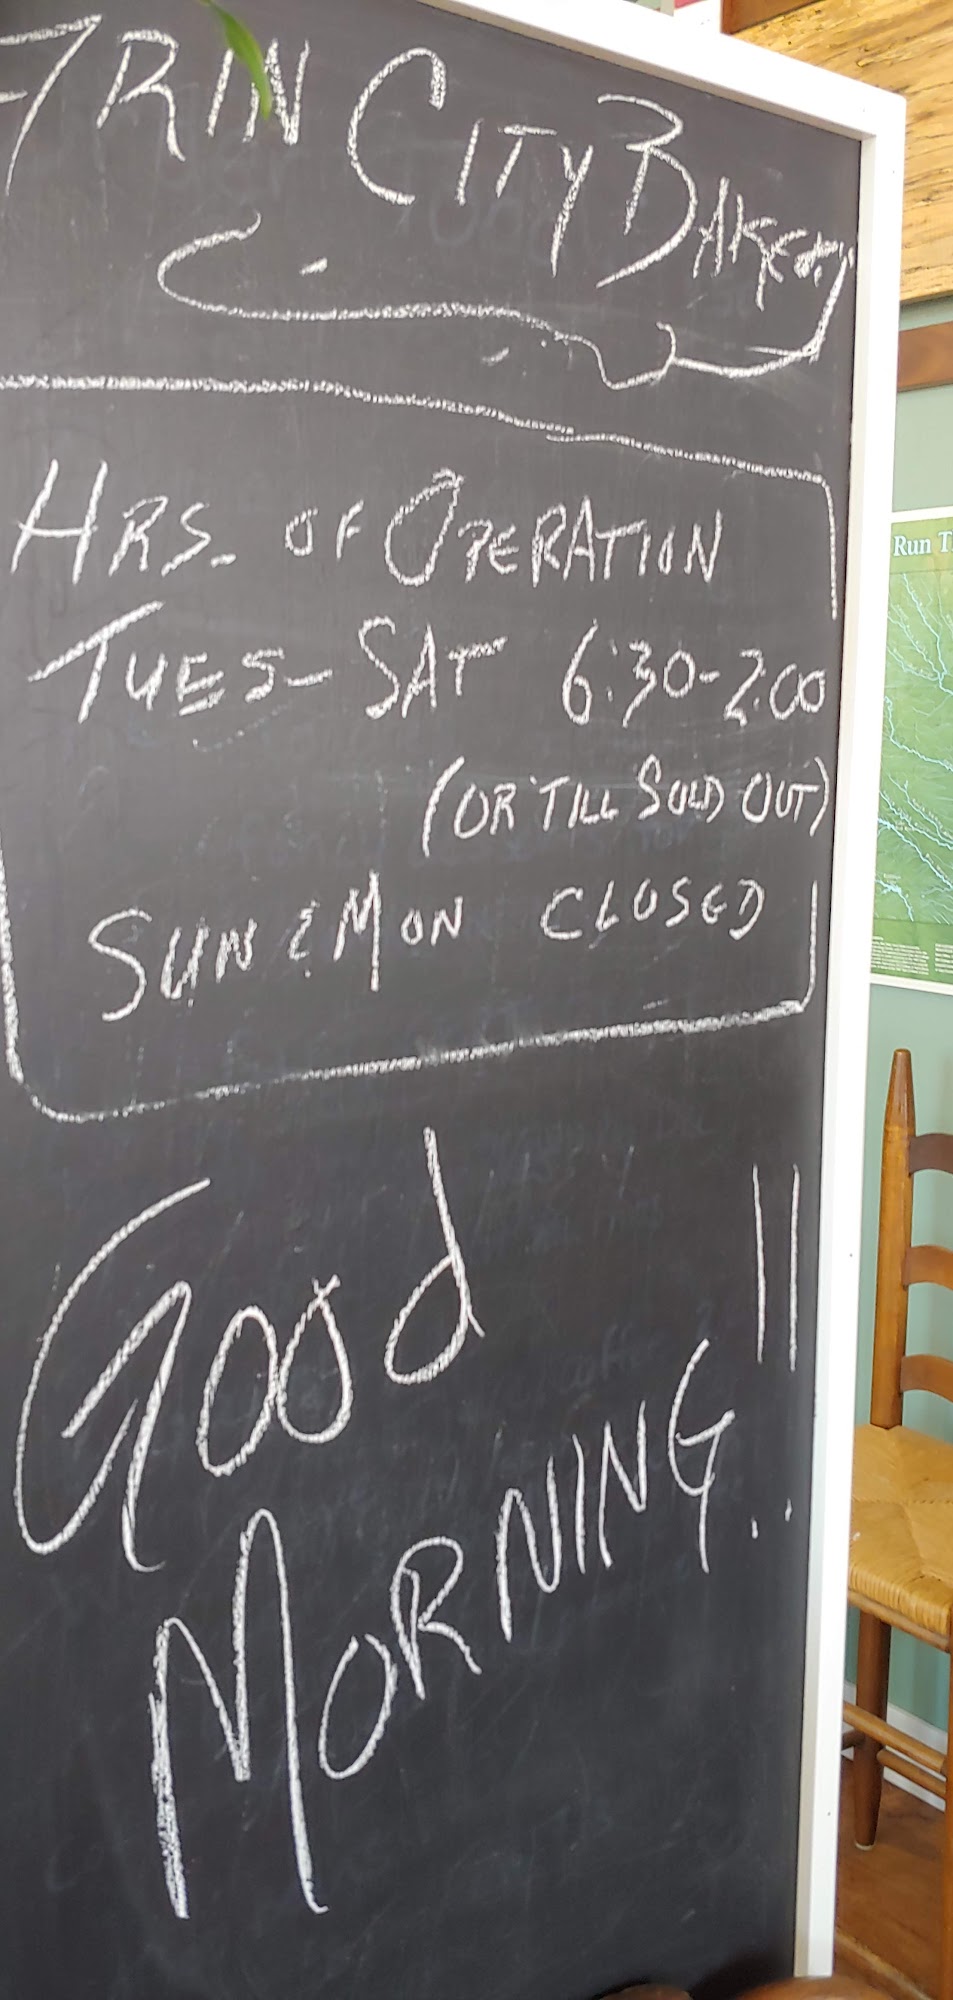 CITY BAKERY
HRS. OF OPERATION
TUES-SAT 6:30-2:00
(OR TILL SOLD OUT)
SUN & MON CLOSED
Good
MORNING!!
Run